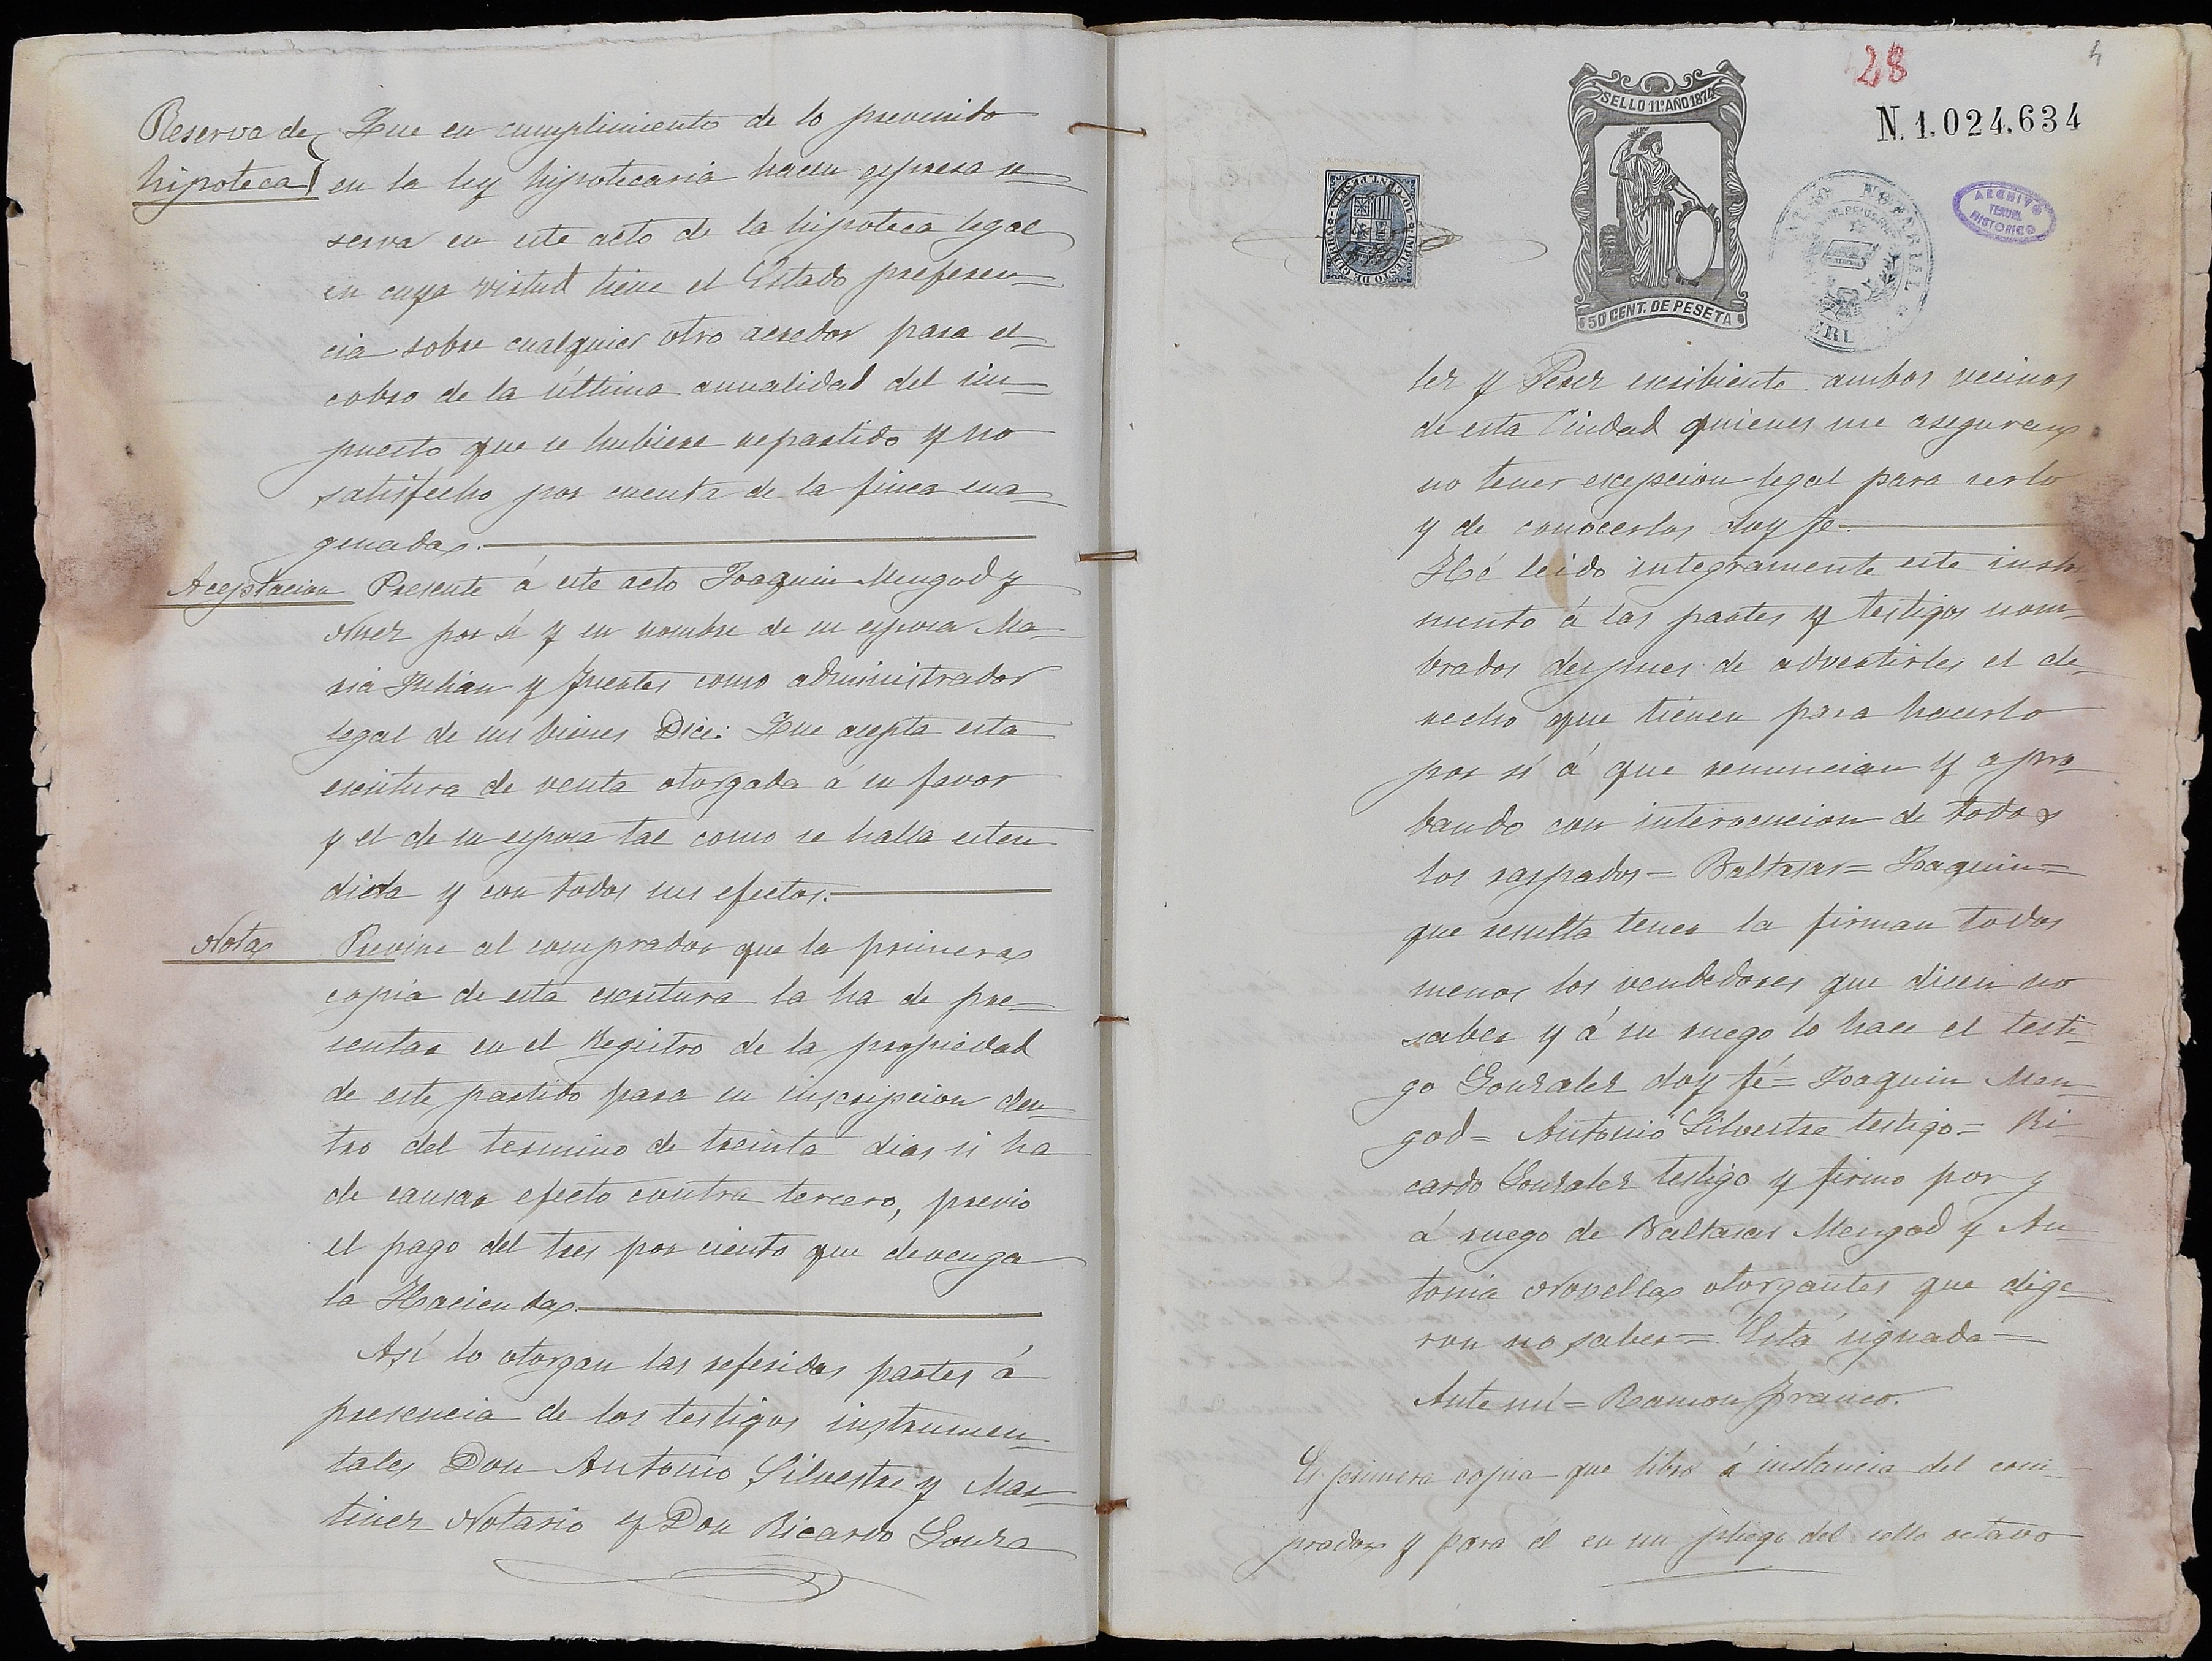 Reserva de
hipoteca
Que en cumplimiento de lo prevenido
en la ley hipotecaria hacen espresa re-
serva en este acto de la hipoteca legal
en cuya virtud tiene el Estado preferen-
cia sobre cualquier otro acredor para el
cobro de la última anualidad del im-
puesto que se hubiere repartido y no
satisfecho por cuenta de la finca ena-
genada.
Aceptacion
Presente á este acto Joaquin Mengod y
por sí y en nombre de su esposa Ma-
ria Julian y Fuertes como administrador
legal de sus bienes Dice: Que acepta esta
escritura de venta otorgada á su favor
y el de su esposa tal como se halla esten-
dida y con todos sus efectos.
Nota
Previne al comprador que la primera
copia de esta escritura la ha de pre-
sentar en el Registro de la propiedad
de este partido para su inscripcion den-
tro del termino de treinta dias si ha
de causar efecto contra tercero, previo
el pago del tres por ciento que devenga
la Hacienda.
Así lo otorgan las referidas partes á
presencia de los testigos instrumen-
tales Don Antonio Silvestre y Mar-
tinez Notario y Don Ricardo Gonza
28
4
SELLO 11º AÑO 1874
50 CENT. DE PESETA
N. 1.024.634
10 CENT. PESETA
IMPUESTO DE GUERRA
ARCHIVO
TERUEL
HISTORICO
lez y Perez escribiente ambos vecinos
de esta Ciudad quienes me aseguran
no tener escepcion legal para serlo
y de conocerlos doy fe.
Hé leido integramente este instru-
mento á las partes y testigos nom-
brados despues de advertirles el de-
recho que tienen para hacerlo
por sí á que renuncian y apro-
bando con intervencion de todos
los raspados = Baltasar = Joaquin =
que resulta tener la firman todos
menos los vendedores que dicen no
saber y á su ruego lo hace el testi-
go Gonzalez doy fé = Joaquin Men-
god = Antonio Silvestre testigo = Ri-
cardo Gonzalez testigo y firmo por y
á ruego de Baltasar Mengod y An-
tonia Novella otorgantes que dige-
ron no saber = Está signada =
Ante mí = Ramon Franco.
Es primera copia que libro á instancia del com-
prador y para él en un pliego del sello octavo